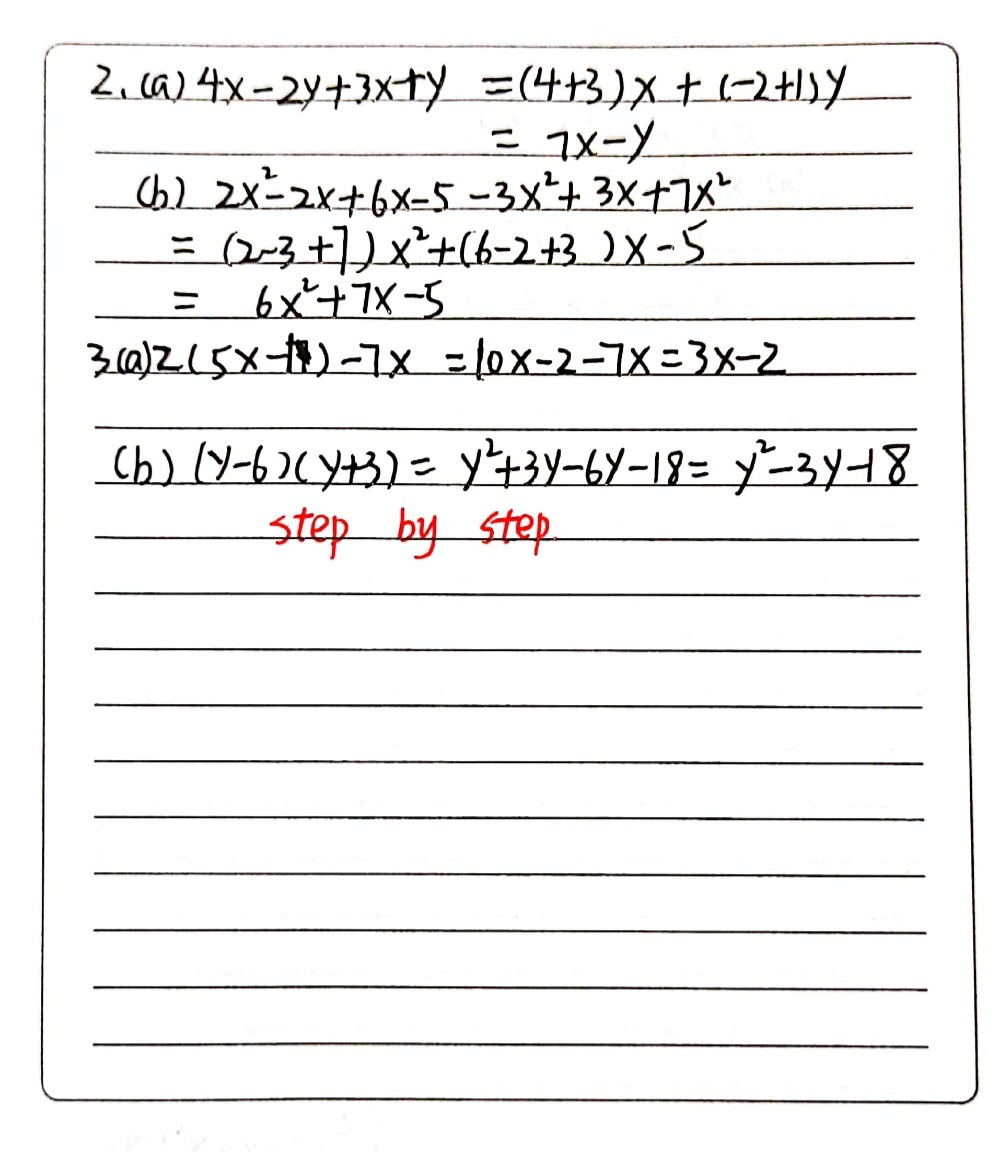 2. (a) 4x-2y+3x+y =(4+3)x + (-2+1)y
= 7x-y
(b) 2x²-2x+6x-5-3x²+3x+7x²
= (2-3+7)x²+(6-2+3)x-5
= 6x²+7x-5
3(a)2(5x-1)-7x =10x-2-7x=3x-2
(b) (y-6)(y+3)= y²+3y-6y-18= y²-3y-18
step by step.